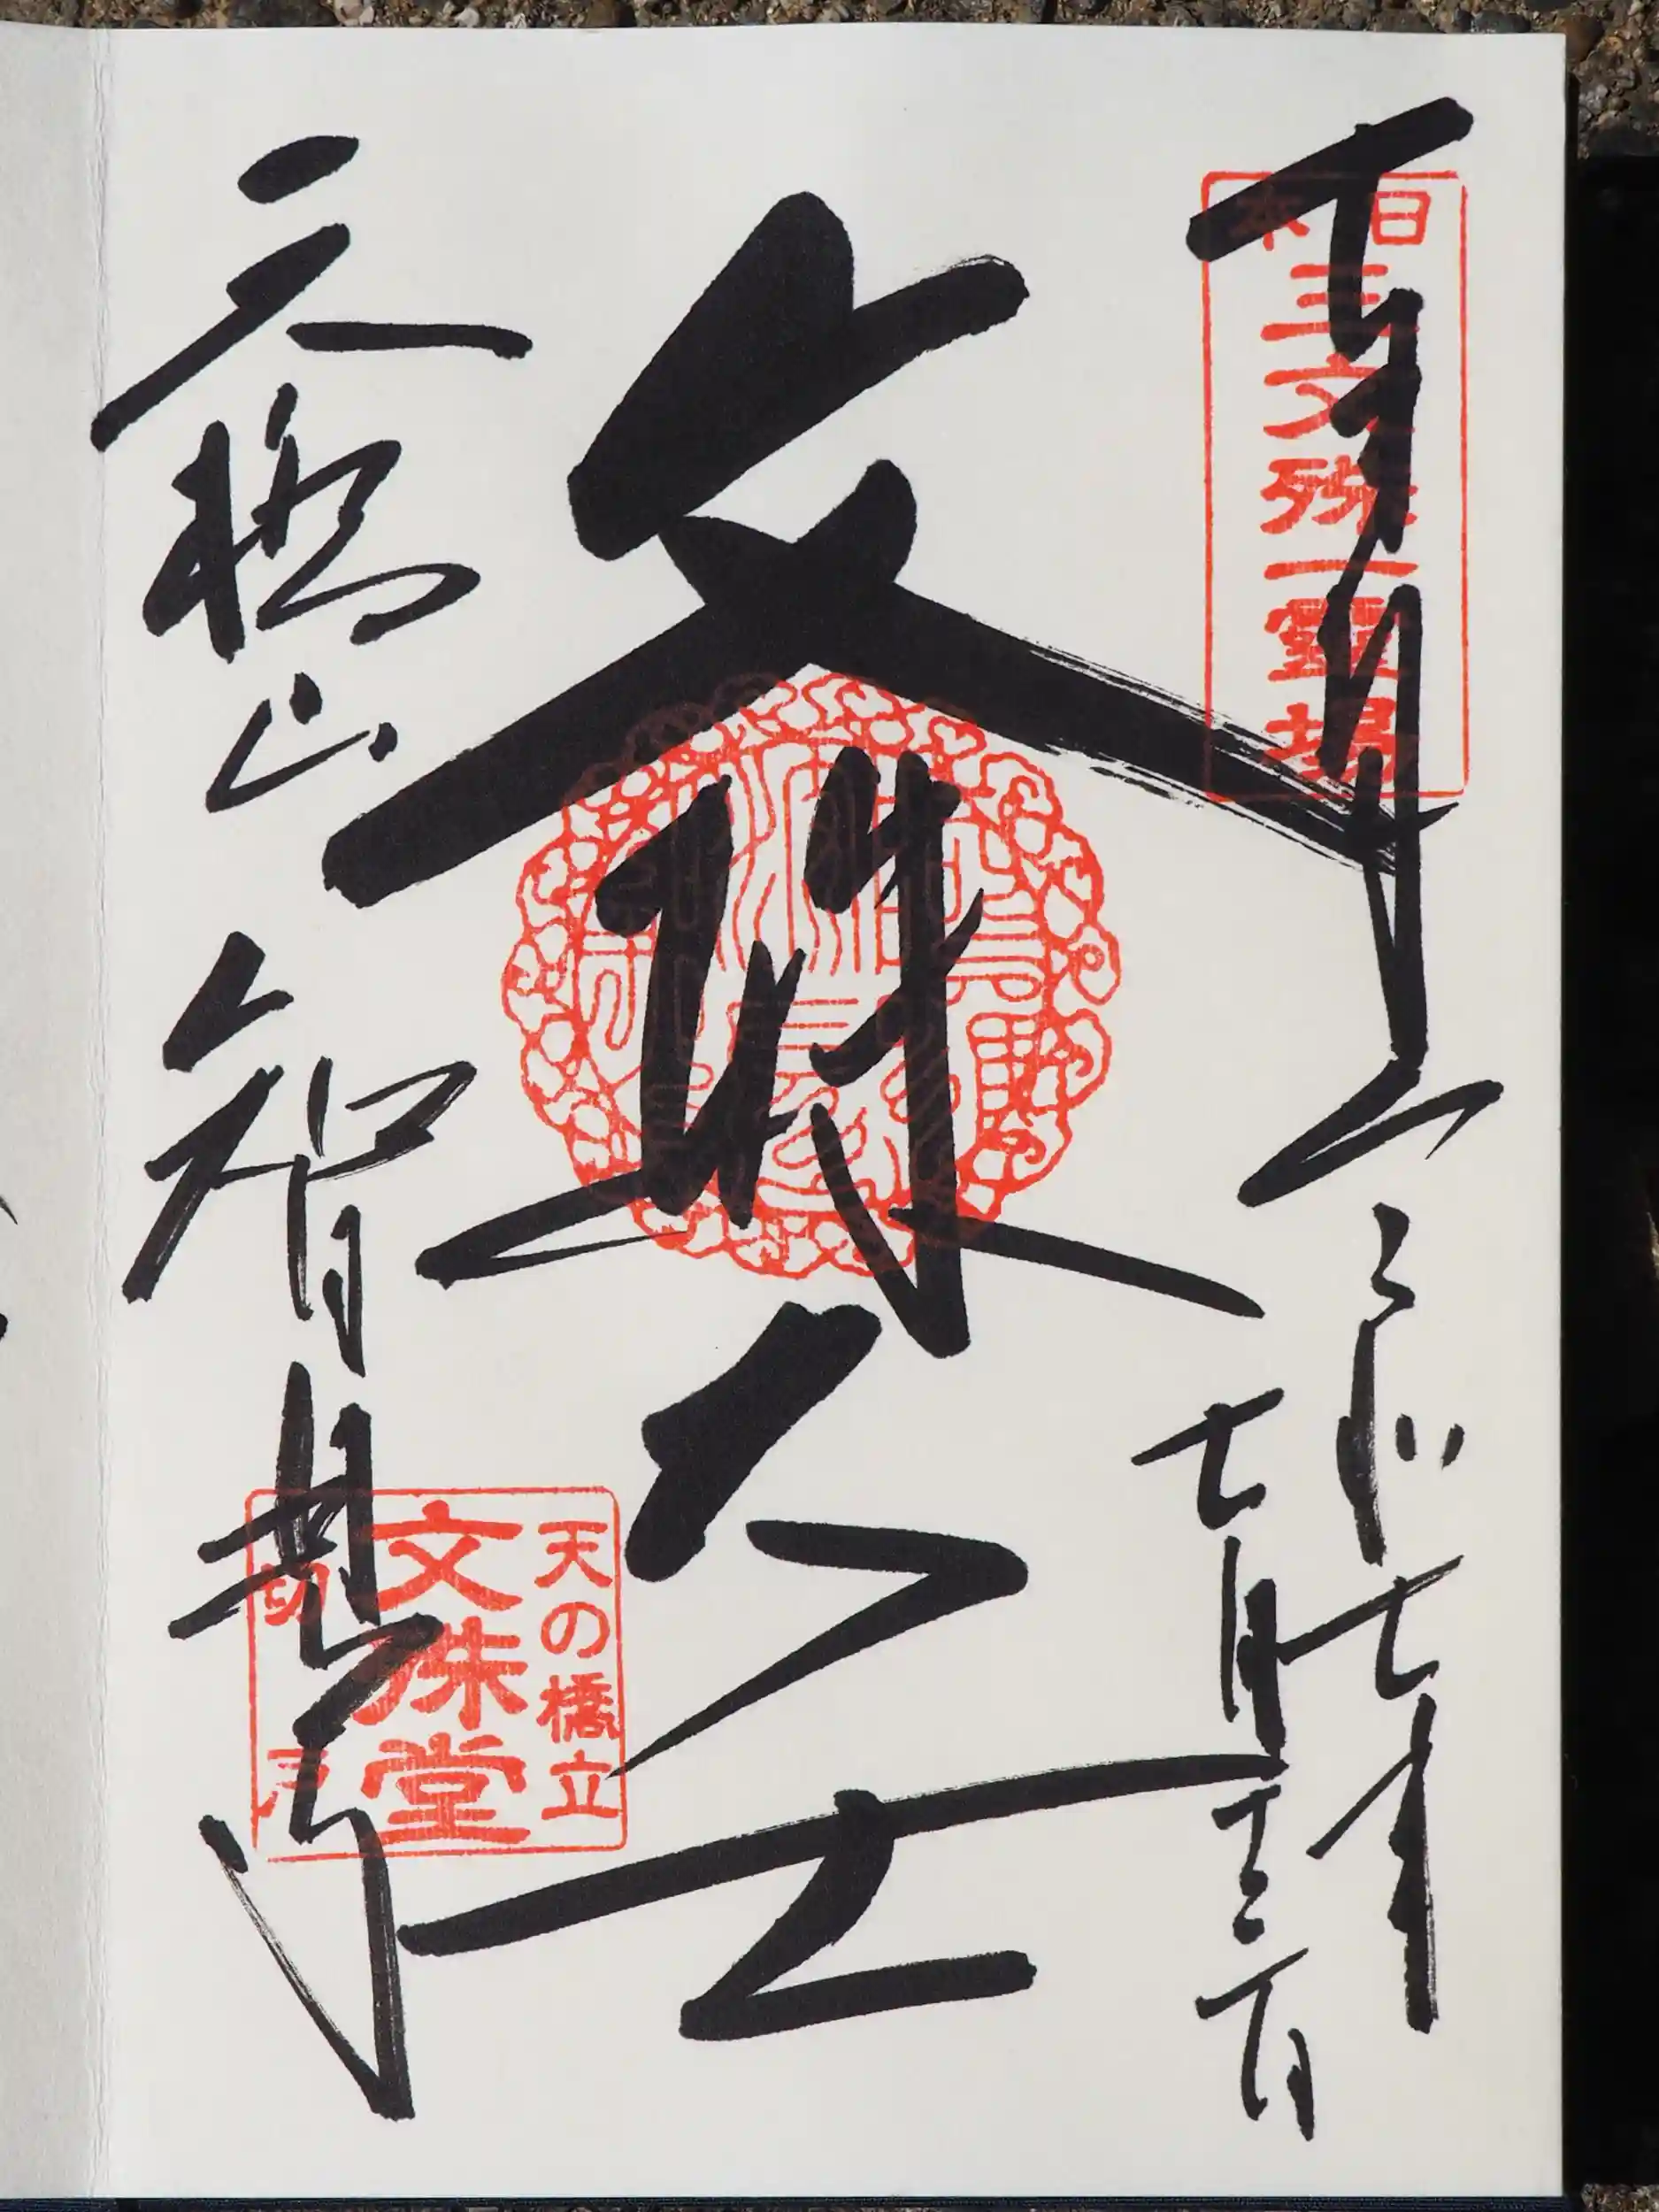 奉拝
令和七年
七月
日本
三文殊一霊場
文殊大士
天橋山
智恩禅寺
天の橋立
文殊堂
切戸